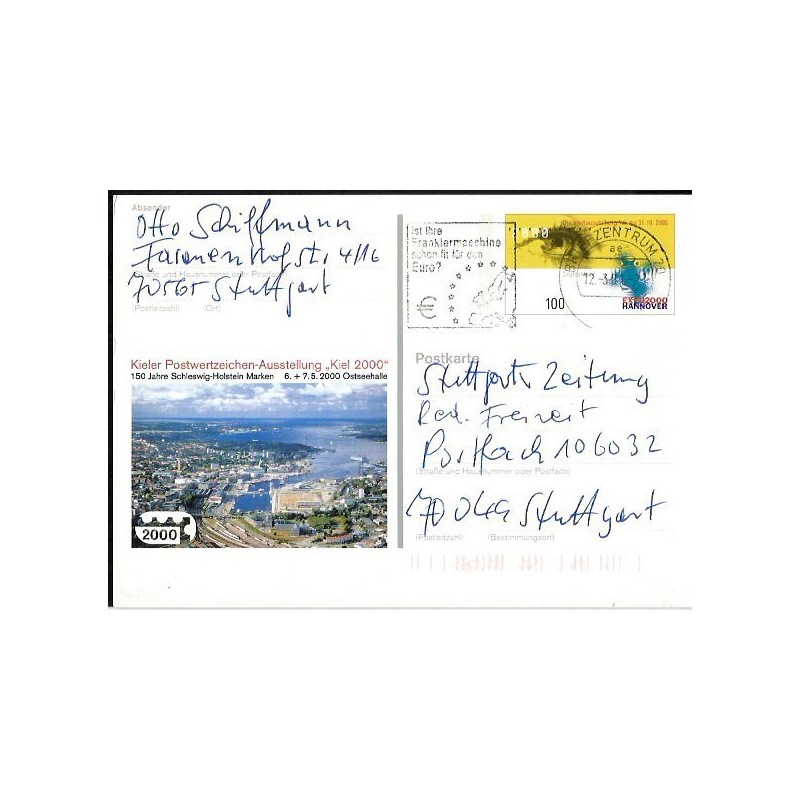 Absender
Otto Schiffmann
Fasanenhofstr. 4/16
(Straße und Hausnummer oder Postfach)
70565 Stuttgart
(Postleitzahl) (Ort)
Ist Ihre
Frankiermaschine
schon fit für den
Euro?
€
ZENTRUM
100
EXPO2000
HANNOVER
Kieler Postwertzeichen-Ausstellung „Kiel 2000“
150 Jahre Schleswig-Holstein Marken 6. + 7.5.2000 Ostseehalle
2000
Postkarte
Stuttgarter Zeitung
Red. Freizeit
Postfach 106032
(Straße und Hausnummer oder Postfach)
70049 Stuttgart
(Postleitzahl) (Bestimmungsort)